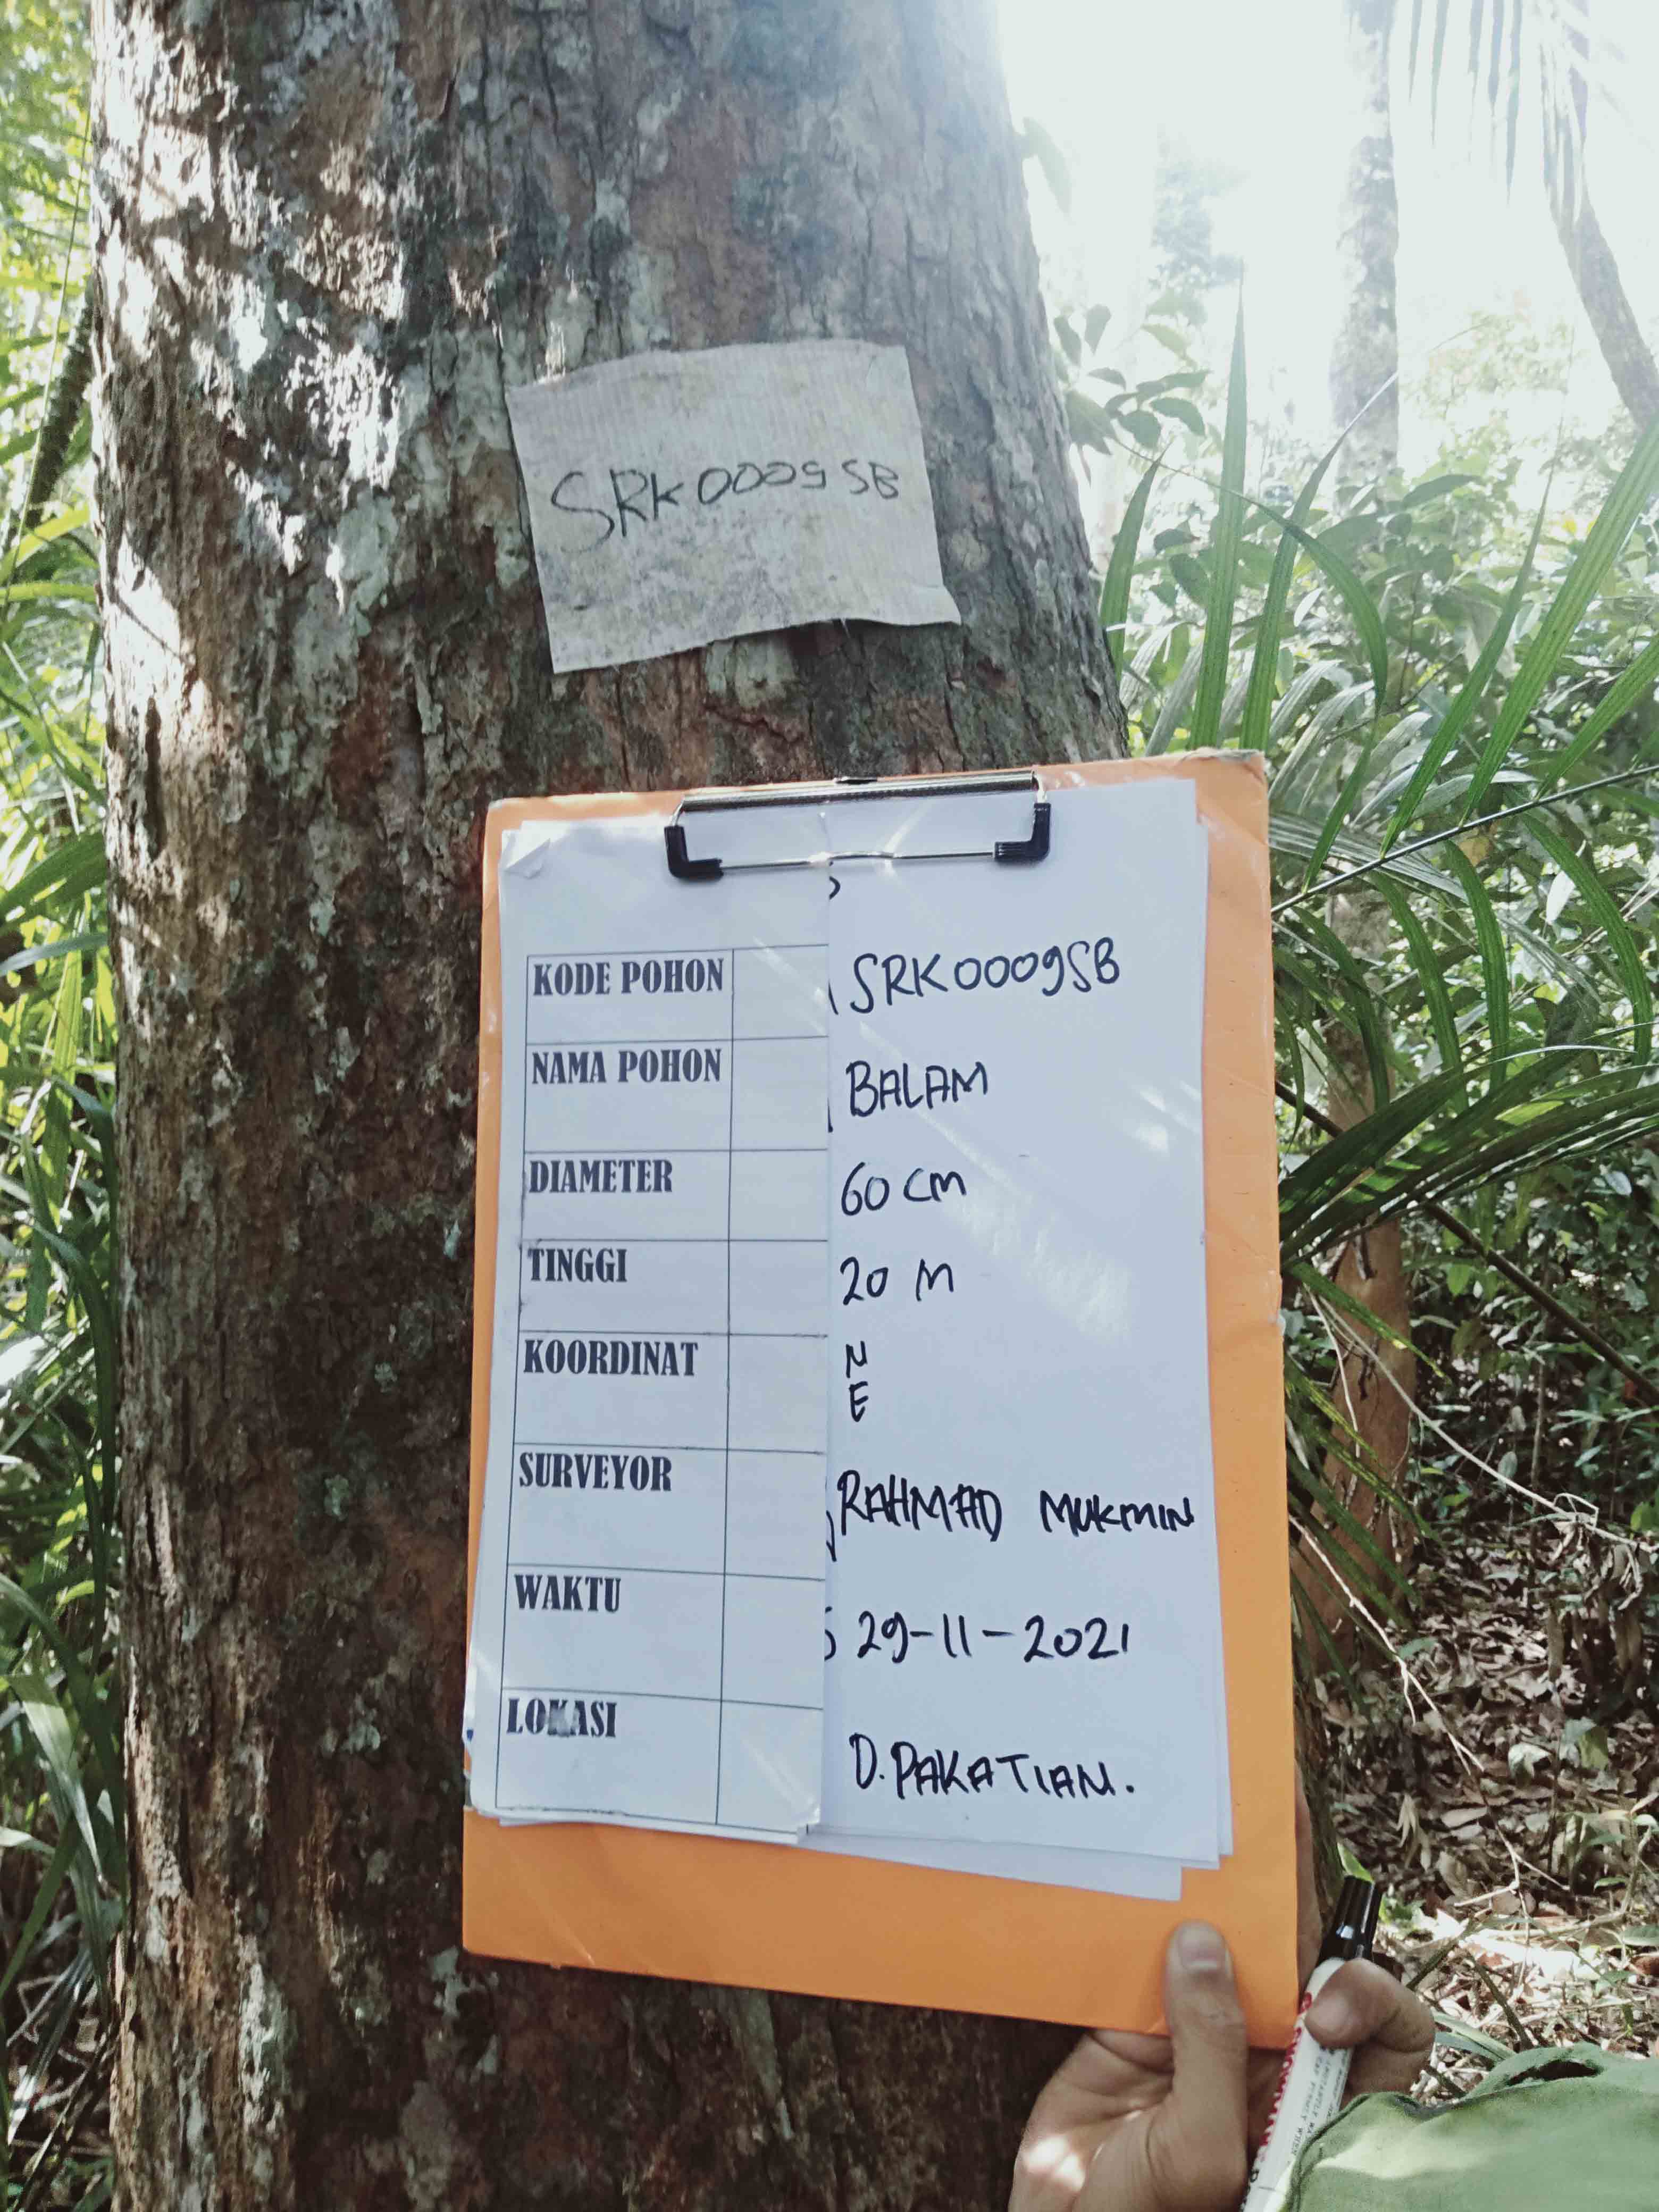 SRK0009SB
KODE POHON SRK0009SB
NAMA POHON BALAM
DIAMETER 60 CM
TINGGI 20 M
KOORDINAT N
E
SURVEYOR RAHMAD MUKMIN
WAKTU 29-11-2021
LOKASI D. PAKATIAN.